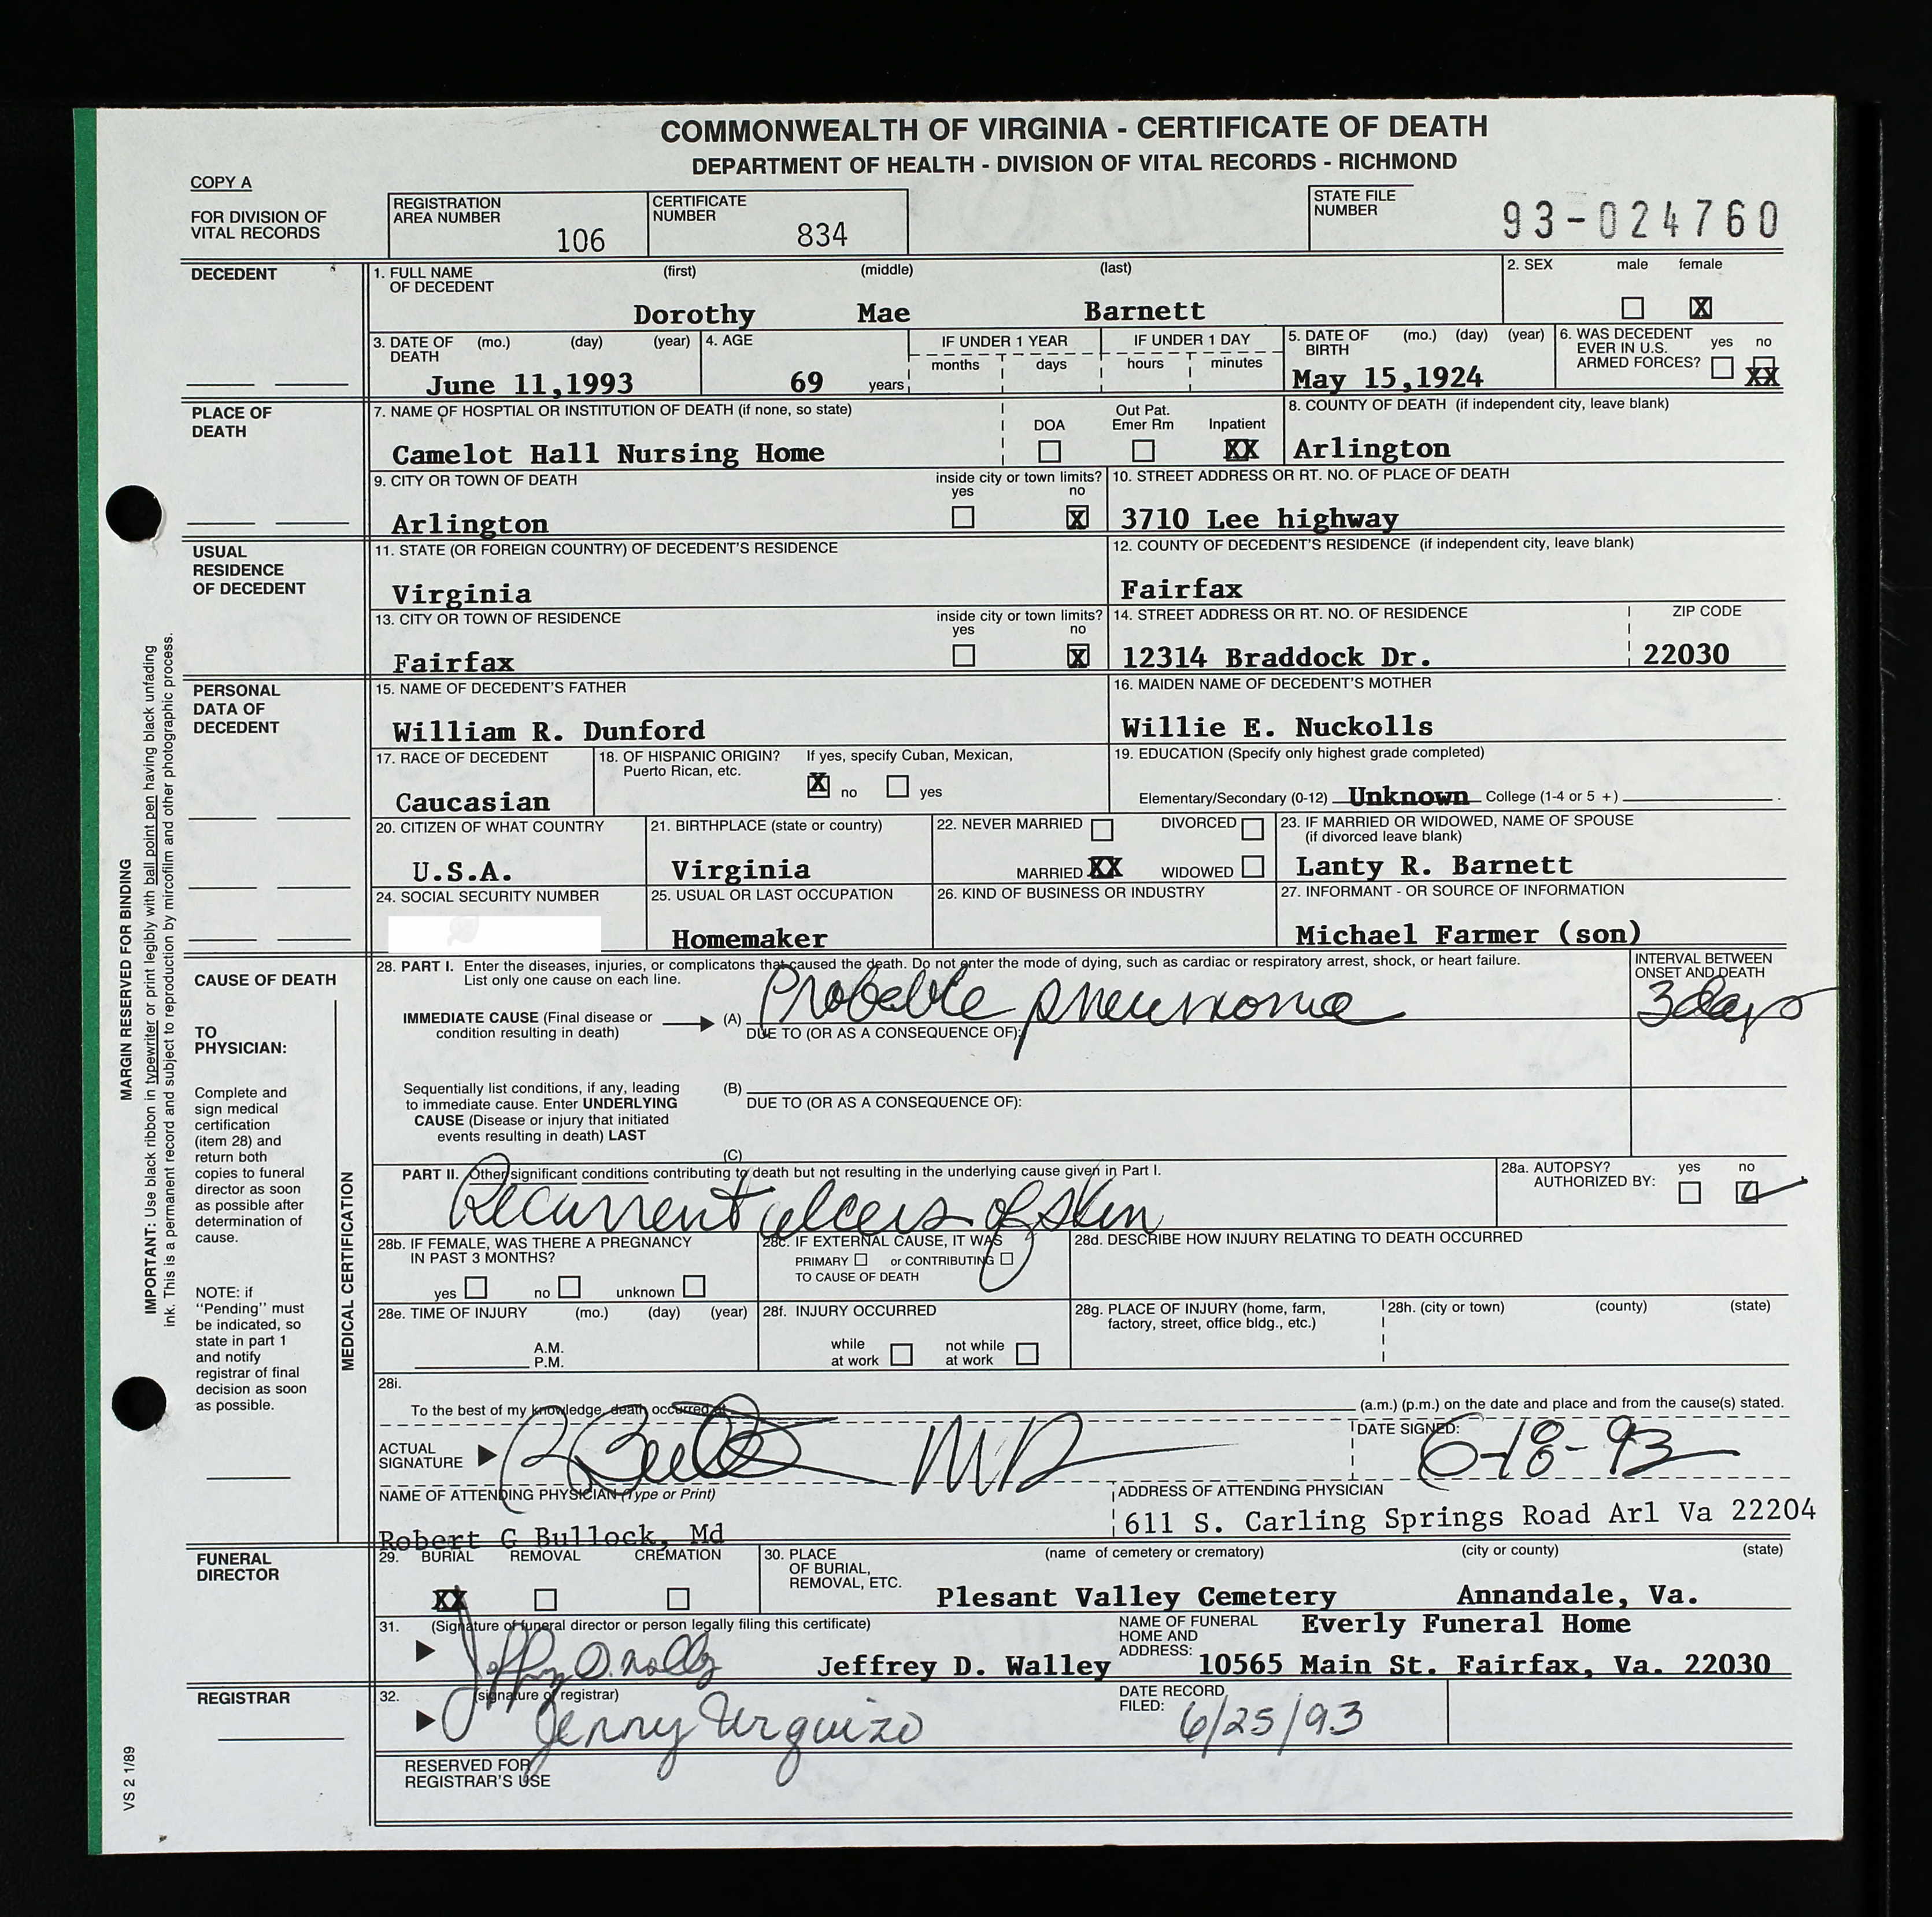 COMMONWEALTH OF VIRGINIA - CERTIFICATE OF DEATH
DEPARTMENT OF HEALTH - DIVISION OF VITAL RECORDS - RICHMOND
COPY A
FOR DIVISION OF
VITAL RECORDS
REGISTRATION
AREA NUMBER
106
CERTIFICATE
NUMBER
834
STATE FILE
NUMBER
93-024760
DECEDENT
1. FULL NAME
OF DECEDENT
(first) (middle) (last)
Dorothy Mae Barnett
2. SEX male female
X
3. DATE OF
DEATH
(mo.) (day) (year)
June 11,1993
4. AGE
69 years
IF UNDER 1 YEAR
months days
IF UNDER 1 DAY
hours minutes
5. DATE OF
BIRTH
(mo.) (day) (year)
May 15,1924
6. WAS DECEDENT
EVER IN U.S.
ARMED FORCES?
yes no
XX
PLACE OF
DEATH
7. NAME OF HOSPTIAL OR INSTITUTION OF DEATH (if none, so state)
Camelot Hall Nursing Home
DOA
Out Pat.
Emer Rm
Inpatient
XX
8. COUNTY OF DEATH (if independent city, leave blank)
Arlington
9. CITY OR TOWN OF DEATH
Arlington
inside city or town limits?
yes no
X
10. STREET ADDRESS OR RT. NO. OF PLACE OF DEATH
3710 Lee highway
USUAL
RESIDENCE
OF DECEDENT
11. STATE (OR FOREIGN COUNTRY) OF DECEDENT'S RESIDENCE
Virginia
12. COUNTY OF DECEDENT'S RESIDENCE (if independent city, leave blank)
Fairfax
13. CITY OR TOWN OF RESIDENCE
Fairfax
inside city or town limits?
yes no
X
14. STREET ADDRESS OR RT. NO. OF RESIDENCE
12314 Braddock Dr.
ZIP CODE
22030
PERSONAL
DATA OF
DECEDENT
15. NAME OF DECEDENT'S FATHER
William R. Dunford
16. MAIDEN NAME OF DECEDENT'S MOTHER
Willie E. Nuckolls
17. RACE OF DECEDENT
Caucasian
18. OF HISPANIC ORIGIN? If yes, specify Cuban, Mexican,
Puerto Rican, etc.
X no yes
19. EDUCATION (Specify only highest grade completed)
Elementary/Secondary (0-12) Unknown College (1-4 or 5 +)
20. CITIZEN OF WHAT COUNTRY
U.S.A.
21. BIRTHPLACE (state or country)
Virginia
22. NEVER MARRIED DIVORCED
MARRIED XX WIDOWED
23. IF MARRIED OR WIDOWED, NAME OF SPOUSE
(if divorced leave blank)
Lanty R. Barnett
24. SOCIAL SECURITY NUMBER
25. USUAL OR LAST OCCUPATION
Homemaker
26. KIND OF BUSINESS OR INDUSTRY
27. INFORMANT - OR SOURCE OF INFORMATION
Michael Farmer (son)
CAUSE OF DEATH
28. PART I. Enter the diseases, injuries, or complicatons that caused the death. Do not enter the mode of dying, such as cardiac or respiratory arrest, shock, or heart failure.
List only one cause on each line.
INTERVAL BETWEEN
ONSET AND DEATH
IMMEDIATE CAUSE (Final disease or
condition resulting in death)
(A) Probable pneumonia
3 days
DUE TO (OR AS A CONSEQUENCE OF):
Sequentially list conditions, if any, leading
to immediate cause. Enter UNDERLYING
CAUSE (Disease or injury that initiated
events resulting in death) LAST
(B)
DUE TO (OR AS A CONSEQUENCE OF):
(C)
TO
PHYSICIAN:
Complete and
sign medical
certification
(item 28) and
return both
copies to funeral
director as soon
as possible after
determination of
cause.
NOTE: if
"Pending" must
be indicated, so
state in part 1
and notify
registrar of final
decision as soon
as possible.
MEDICAL CERTIFICATION
PART II. Other significant conditions contributing to death but not resulting in the underlying cause given in Part I.
Recurrent ulcers of skin
28a. AUTOPSY?
AUTHORIZED BY:
yes no
28b. IF FEMALE, WAS THERE A PREGNANCY
IN PAST 3 MONTHS?
yes no unknown
28c. IF EXTERNAL CAUSE, IT WAS
PRIMARY or CONTRIBUTING
TO CAUSE OF DEATH
28d. DESCRIBE HOW INJURY RELATING TO DEATH OCCURRED
28e. TIME OF INJURY (mo.) (day) (year)
A.M.
P.M.
28f. INJURY OCCURRED
while
at work
not while
at work
28g. PLACE OF INJURY (home, farm,
factory, street, office bldg., etc.)
28h. (city or town) (county) (state)
28i.
To the best of my knowledge, death occurred at (a.m.) (p.m.) on the date and place and from the cause(s) stated.
ACTUAL
SIGNATURE
MD
DATE SIGNED:
6-18-93
NAME OF ATTENDING PHYSICIAN (Type or Print)
Robert G Bullock, Md
ADDRESS OF ATTENDING PHYSICIAN
611 S. Carling Springs Road Arl Va 22204
FUNERAL
DIRECTOR
29. BURIAL REMOVAL CREMATION
XX
30. PLACE
OF BURIAL,
REMOVAL, ETC.
(name of cemetery or crematory) (city or county) (state)
Plesant Valley Cemetery Annandale, Va.
31. (Signature of funeral director or person legally filing this certificate)
Jeffrey D. Walley
NAME OF FUNERAL
HOME AND
ADDRESS:
Everly Funeral Home
10565 Main St. Fairfax, Va. 22030
REGISTRAR
32. (signature of registrar)
Jenny Urquizo
DATE RECORD
FILED:
6/25/93
RESERVED FOR
REGISTRAR'S USE
MARGIN RESERVED FOR BINDING
IMPORTANT: Use black ribbon in typewriter or print legibly with ball point pen having black unfading
ink. This is a permanent record and subject to reproduction by mircofilm and other photographic process.
VS 2 1/89